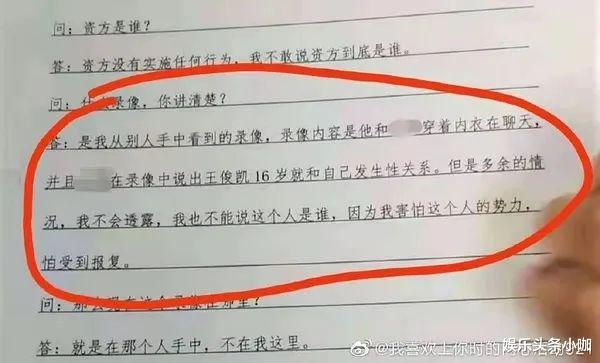 问：资方是谁？
答：资方没有实施任何行为，我不敢说资方到底是谁。
问：什么录像，你讲清楚？
答：是我从别人手中看到的录像，录像内容是他和 穿着内衣在聊天，
并且 在录像中说出王俊凯16岁就和自己发生性关系。但是多余的情
况，我不会透露，我也不能说这个人是谁，因为我害怕这个人的势力，
怕受到报复。
问：那么现在这个录像在那里？
答：就是在那个人手中，不在我这里。
@我喜欢上你时的
娱乐头条小咖